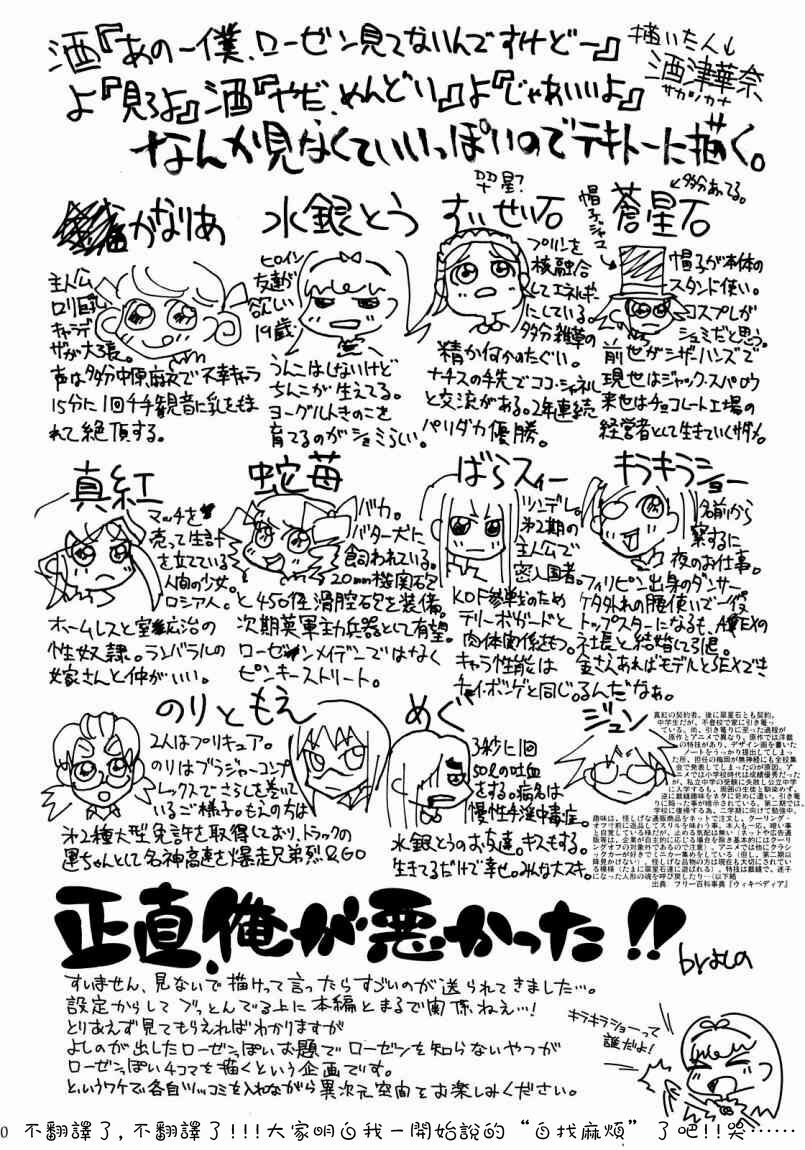 酒『あのー僕、ローゼン見てないんですけどー』
描いた人↓
酒津華奈
サカツカナ
よ『見ろよ』酒『やだ、めんどい』よ『じゃあいいよ』
なんか見なくていいっぽいのでテキトーに描く。
かなりあ
主人公
ロリ巨乳
キャラデ
ザが大張。
声は多分中原麻衣で不幸キャラ
15分に1回千手観音に乳をもま
れて絶頂する。
水銀とう
ヒロイン
友達が
欲しい
19歳。
うんこはしないけど
ちんこが生えてる。
ヨーグルトきのこを
育てるのがシュミらしい。
翠星?
すいせい石
プリンを
核融合
してエネルギー
にしている。
多分雑草の
精か何かのたぐい。
ナチスの手先でココ・シャネル
と交流がある。2年連続
パリダカ優勝。
←多分あってる。
蒼星石
帽子がジャマ
帽子が本体の
スタンド使い。
コスプレが
シュミだと思う。
前世がシザーハンズで
現世はジャック・スパロウ
来世はチョコレート工場の
経営者として生きていくサダメ。
真紅
マッチを
売って生計
を立てている
人間の少女。
ロシア人。
ホームレスと室広治の
性奴隷。ランバラルの
嫁さんと仲がいい。
蛇苺
バカ。
バター犬に
飼われている。
20mm機関砲
と450径滑腔砲を装備。
次期英軍主力兵器として有望。
ローゼンメイデンではなく
ピンキーストリート。
ばらスィー
ツンデレ。
第2期の
主人公で
密入国者。
KOF参戦のため
テリーボガードと
肉体関係をもつ。
キャラ性能は
チョイ・ボンゲと同じ。
キラキラショー
名前から
察するに
夜のお仕事。
フィリピン出身のダンサー
ケタ外れの腰使いで一役
トップスターになるも、AVEXの
社長と結婚して引退。
金さえあればモデルとSEXでき
るんだなぁ。
のりともえ
2人はプリキュア。
のりはブラジャーコンプ
レックスでさらしを巻いて
いるご様子。もえの方は
第2種大型免許を取得しており、トラックの
運ちゃんとして名神高速を爆走兄弟烈&GO
めぐ
3秒に1回
50ℓの吐血
をする。病名は
慢性手淫中毒症。
水銀とうのお友達。キスもする。
生きてるだけで幸せ。みんな大スキ。
ジュン
真紅の契約者。後に翠星石とも契約。
中学生だが、不登校で家に引き篭っ
ている。尚、引き篭りに至った過程が
原作とアニメで異なり、原作では洋裁
の特技があり、デザイン画を書いた
ノートをうっかり提出してしまっ
た所、担任の梅岡が無神経にも全校集
会で発表してしまったのが原因。ア
ニメでは小学校時代は成績優秀だった
が、私立中学の受験に失敗し公立中学
に入学するも、周囲の生徒と馴染めず、
逆に裁縫趣味をネタに苛めに遭い、引き篭
りに陥った事が暗示されている。第二期では、
学校に復帰する為、二学期に向けて勉強中。
趣味は、怪しげな通販商品をネットで注文し、クーリング・
オフ寸前に返品してスリルを味わう事。本人も一応、暗い事
と自覚している様だが、止める気配は無い(ネットや広告通
販等は、企業が自主的に応じる場合を除き基本的にはクーリ
ングオフの対象外であるので注意)。アニメでは他にクラシ
ックカーが好きでミニカー集めをしている(但し、第二期以
降見かけない)。怪しげな品物の方は現在も大切にされてい
る模様(たまに翠星石達に遊ばれる)。特技は裁縫で、迷子
になった人形の魂を呼び戻したり…(以下略
出典 フリー百科事典『ウィキペディア』
正直、俺が悪かった!!
by よしの
すいません、見ないで描けって言ったらすごいのが送られてきました…。
設定からしてブッとんでる上に本編とまるで関係ねぇ…!
とりあえず見てもらえればわかりますが
よしのが出したローゼンっぽいお題でローゼンを知らないやつが
ローゼンっぽい4コマを描くという企画です。
というワケで各自ツッコミを入れながら異次元空間をお楽しみください。
キラキラショーって
誰だよ!
0 不翻譯了,不翻譯了!!!大家明白我一開始說的“自找麻煩”了吧!!哭……